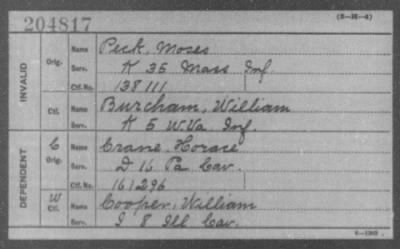 204817
(3—86—4)
INVALID
Orig.
Name Peck, Moses
Serv. K 35 Mass Inf.
Ctf. No. 138111
Ctf.
Name Burcham, William
Serv. K 5 W.Va. Inf.
DEPENDENT
C
Orig.
Name Crane, Horace
Serv. D 16 Pa Cav.
Ctf. No. 161296
W
Ctf.
Name Cooper, William
Serv. I 8 Ill Cav.